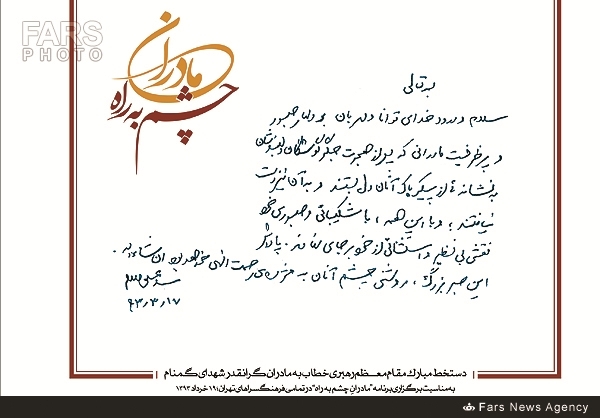 FARS
PHOTO
مادران
چشم به راه
بسمه تعالی
سلام و درود خدای توانا و مهربان به دلهای صبور
و پر ظرفیت مادرانی که پس از هجرت جگرگوشگان
نشانه از پیکر پاک آنان دل بستند و به آن نیز دست
نیافتند ؛ و با این همه ، با شکیبائی و صبوری خود
نقشی بی نظیر و استثنائی از خود بر جای نهادند . پاداش
این صبر بزرگ ، روشنی چشم آنان به رحمت الهی خواهد بود ان شاءالله .
۹۳٫۳٫۱۷
دستخط مبارک مقام معظم رهبری خطاب به مادران گرانقدر شهدای گمنام
به مناسبت برگزاری برنامه "مادران چشم به راه" در تمامی فرهنگسراهای تهران؛ ۱۹ خرداد ۱۳۹۳
Fars News Agency